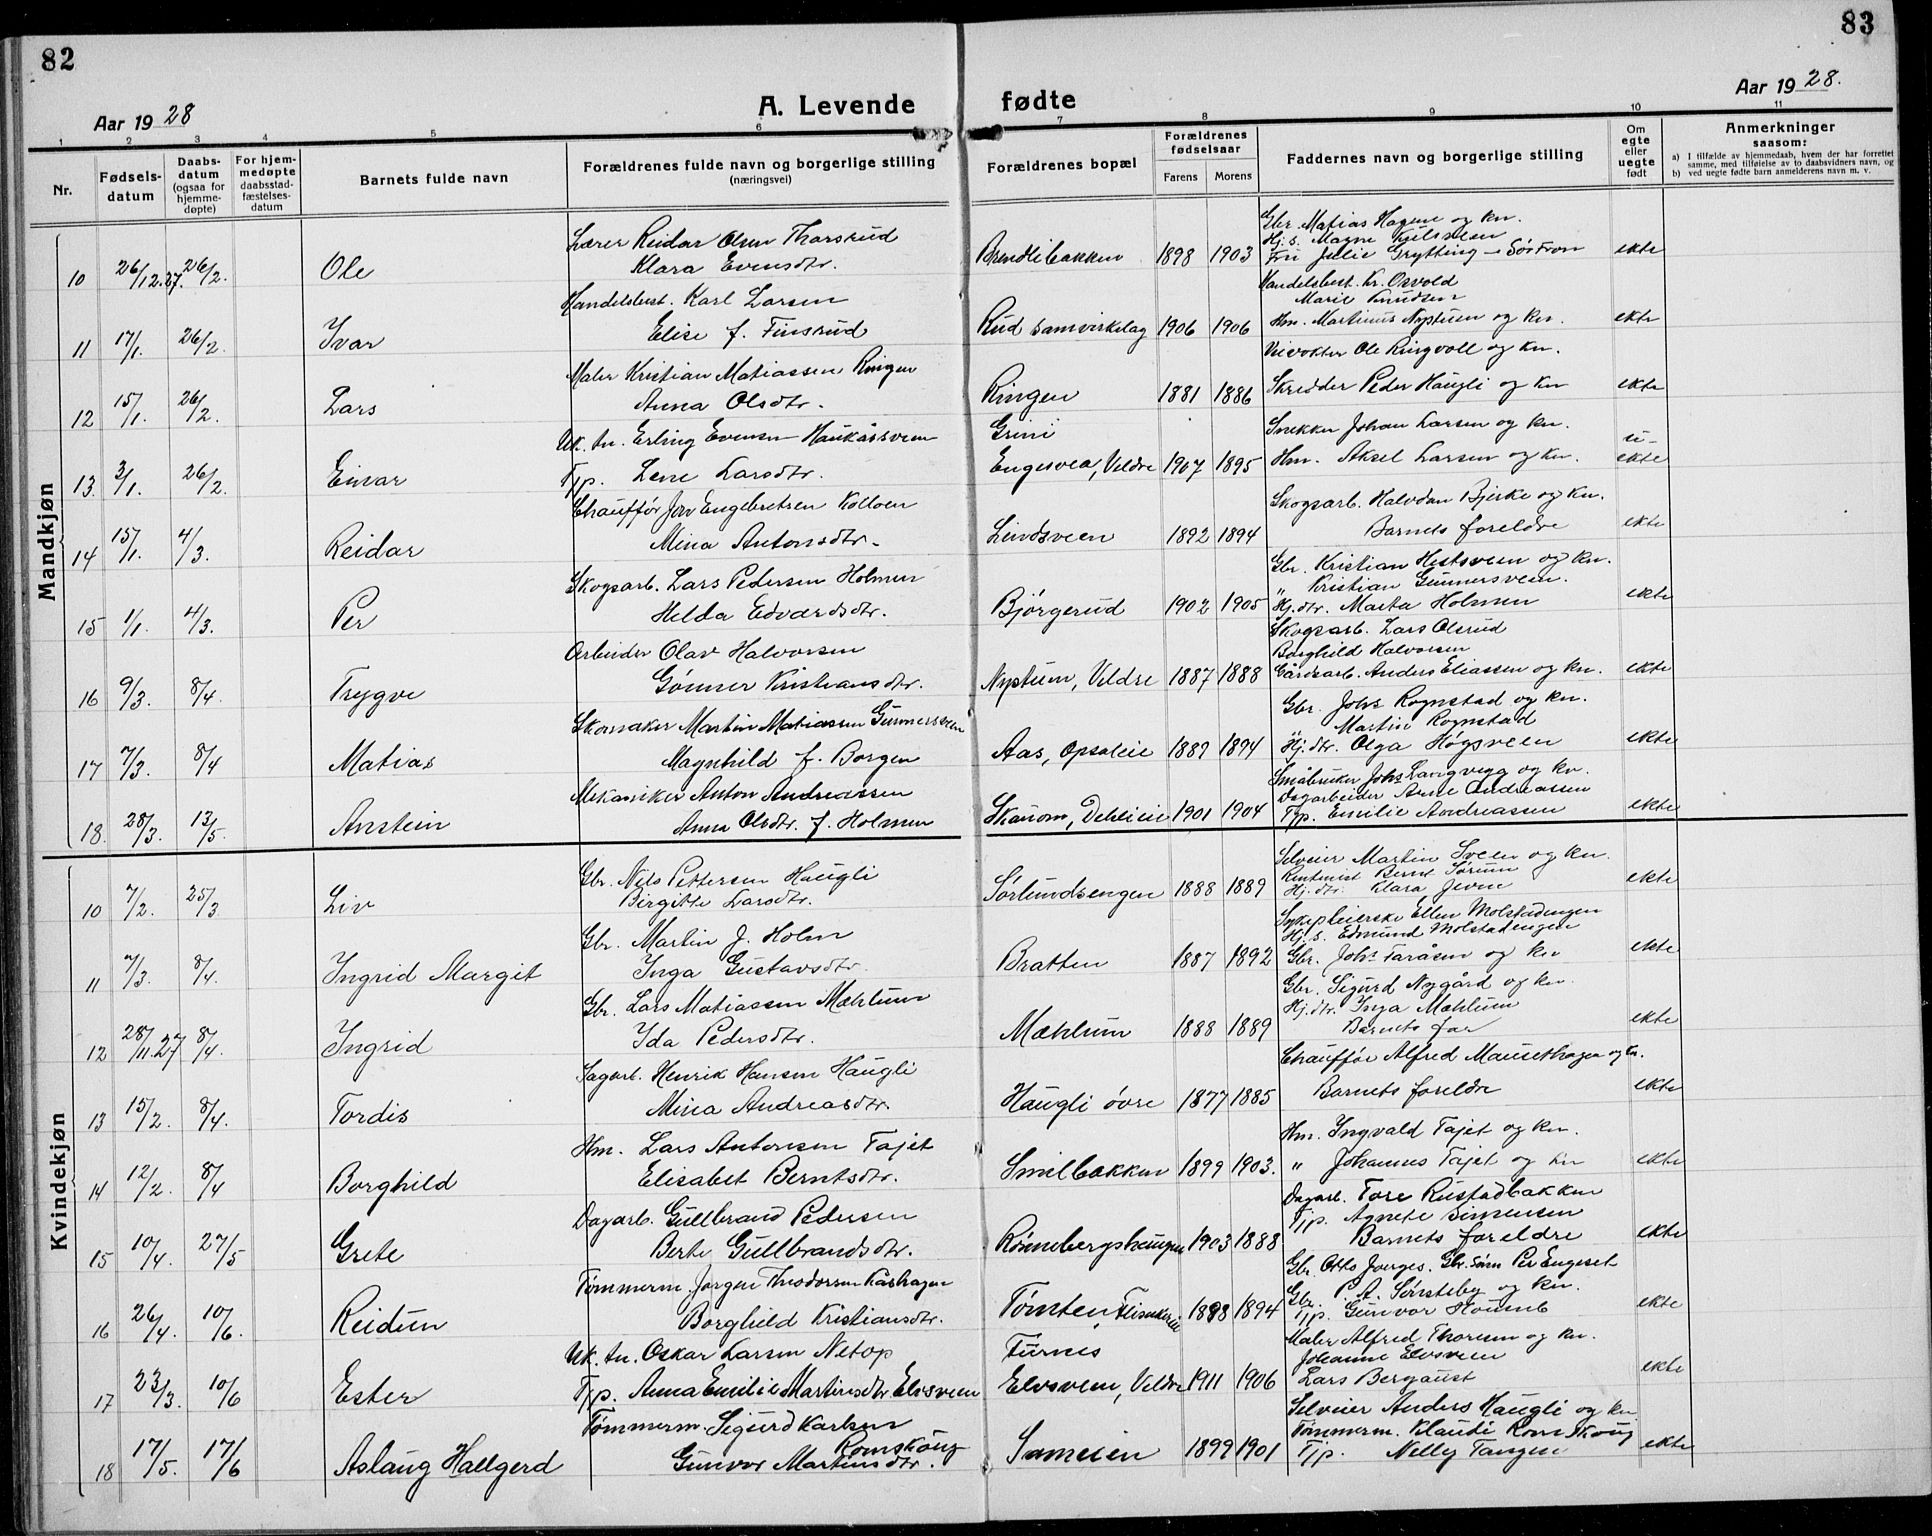 82
83
Aar 1928
A. Levende fødte
Aar 1928.
1 2 3 4 5 6 7 8 9 10 11
Nr.
Fødsels-datum
Daabs-datum (ogsaa for hjemme-døpte)
For hjem-medøpte daabsstad-fæstelses-datum
Barnets fulde navn
Forældrenes fulde navn og borgerlige stilling (næringsvei)
Forældrenes bopæl
Forældrenes fødselsaar
Farens Morens
Faddernes navn og borgerlige stilling
Om egte eller uegte født
Anmerkninger saasom:
a) I tilfælde av hjemmedaab, hvem der har forrettet samme, med tilføielse av to daabsvidners navn, og
b) ved uegte fødte barn anmelderens navn m. v.
Mandkjøn
10 26/12.27. 26/2. Ole
Lærer Reidar Olsen Thorsrud
Klara Evensdtr.
Brendlibakken 1898 1903
Gbr. Matias Hagen og kn.
Hj.s. Magne Kjelsveen
Fru Julie Grytting - Sør Fron
ekte
11 17/1. 26/2. Ivar
Handelsbest. Karl Larsen
Elise f. Finsrud
Rud samvirkelag 1906 1906
Handelsbest. Kr. Osvold
Marie Knudsen
Hm. Martinus Nyptuen og kn.
ekte
12 15/1. 26/2. Lars
Maler Kristian Matiassen Ringen
Anna Olsdtr.
Ringen 1881 1886
Veivokter Ole Ringvoll og kn.
Skredder Peder Haugli og kn
ekte
13. 3/1. 26/2. Einar
Uk. tn. Erling Evensen Haukåssveen
Tjp. Lene Larsdtr.
Grini
Engesvea, Veldre 1907 1895
Snekker Johan Larsen og kn.
Hm. Aksel Larsen og kn.
u-ekte
14 15/1. 4/3. Reidar
Chauffør Jon Engebretsen Kolloen
Mina Antonsdtr.
Lundsveen 1892 1894
Skogsarb. Halvdan Bjerke og kn.
Barnets foreldre
ekte
15 1/1. 4/3. Per
Skogsarb. Lars Pedersen Holmen
Helda Edvardsdtr.
Bjørgerud 1902 1905
Gbr. Kristian Hestsveen og kn.
" Kristian Gunnersveen.
Hj.dtr. Marta Holmen
ekte
16 9/3. 8/4. Trygve
Arbeider Olav Halvorsen
Gønner Kristiansdtr.
Nyptuen, Veldre 1887 1888
Skogsarb. Lars Olsrud
Borghild Halvorsen
Gårdsarb. Anders Eliassen og kn.
ekte
17 7/3. 8/4 Matias
Skomaker Martin Matiassen Gunnersveen
Magnhild f. Borgen
Aas, Opsaleie 1889 1894
Gbr. Johs Rognstad og kn.
" Martin Rognstad
Hj.dtr. Olga Høgsveen
ekte
18. 28/3. 13/5. Anstein
Mekaniker Anton Andreassen
Anna Olsdtr. f. Holmen
Skanom, Dehlieie 1901 1904
Småbruker Johs Langvegg og kn.
Dagarbeider Arne Andreassen
Tjp. Emilie Andreassen
ekte
Kvindekjøn
10 7/2. 25/3 Liv
Gbr. Nils Pettersen Haugli
Birgitte Larsdtr.
Sørlundsengen 1888 1889
Selveier Martin Sveen og kn.
Rentenist Bernt Sørum
Hj.dtr. Klara Jevne
ekte
11 7/3. 8/4. Ingrid Margit
Gbr. Martin J. Holm
Inga Gustavsdtr.
Bratten 1887 1892
Sykepleierske Ellen Molstadengen
Hj.s. Edmund Molstadengen
Gbr. Johs Faråsen og kn
ekte
12 28/11.27 8/4. Ingrid
Gbr. Lars Matiassen Mæhlum
Ida Pedersdtr.
Mæhlum 1888 1889
Gbr. Sigurd Nygård og kn.
Hj.dtr. Inga Mæhlum
Barnets far
ekte
13 15/2. 8/4. Tordis
Sagarb. Henrik Hansen Haugli
Mina Andreasdtr.
Haugli øvre 1877 1885
Chauffør Alfred Mausethagen og kn.
Barnets foreldre
ekte
14 12/2. 8/4 Borghild
Hm. Lars Antonsen Tajet
Elisabet Berntsdtr.
Smelbakken 1899 1903.
Hm. Ingvald Tajet og kn.
" Johannes Tajet og kn
ekte
15 10/4. 27/5 Grete
Dagarb. Gullbrand Pedersen
Berte Gullbrandsdtr.
Rønnebergshaugen 1903 1888
Dagarb. Tore Rustadbakken
Tjp. Agnete Simensen
Barnets foreldre
ekte
16 26/4. 10/6. Reidun
Tømmerm. Jørgen Theodorsen Kåshagen
Borghild Kristiansdtr.
Tømten, 1888 1894
Gbr. Otto Joerges. Gbr. sønn Per Engeset
Gbr. P.A. Sørsteby og kn.
Tjp. Gunvor Houmb
ekte
17 23/3. 10/6 Ester
Uk. tn. Oskar Larsen Netop
Tjp. Anna Emilie Martinsdtr Elvsveen
Furnes
Elvsveen, Veldre 1911 1906
Maler Alfred Thoresen og kn.
Johanne Elvsveen
Lars Bergaust
ekte
18 17/5. 17/6 Aslaug Hallgerd
Tømmerm. Sigurd Karlsen Romskoug
Gunvor Martinsdtr.
Sameien 1899 1901
Selveier Anders Haugli og kn
Tømmerm. Klaudi Romskoug
Tjp. Nelly Tangen
ekte